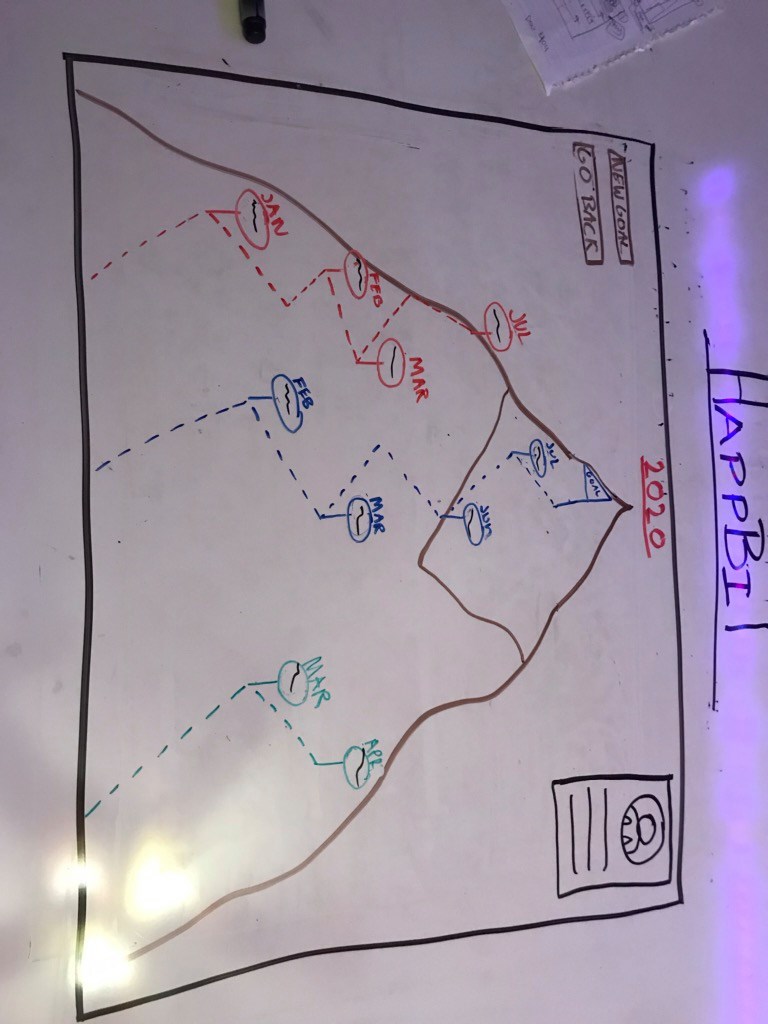 HAPPBIT
2020
NEW GOAL
GO BACK
GOAL
JUL
JUL
JUN
MAR
FEB
MAR
APR
FEB
MAR
JAN